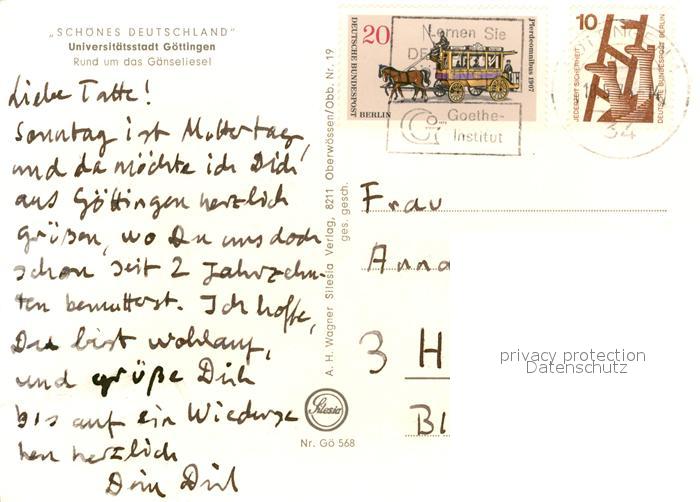 „SCHÖNES DEUTSCHLAND"
Universitätsstadt Göttingen
Rund um das Gänseliesel
Liebe Tatte!
Sonntag ist Muttertag,
und da möchte ich Dich
aus Göttingen herzlich
grüßen, wo Du uns doch
schon seit 2 Jahrzehn-
ten bemutterst. Ich hoffe,
Du bist wohlauf,
und grüße Dich
bis auf ein Wiederse
hen herzlich
Dein
A. H. Wagner Silesia Verlag, 8211 Oberwössen/Obb. Nr. 19
ges. gesch.
Silesia
Nr. Gö 568
DEUTSCHE BUNDESPOST
20
BERLIN
Pferdeomnibus 1907
Lernen Sie
Goethe-
Institut
10
JEDERZEIT SICHERHEIT
DEUTSCHE BUNDESPOST BERLIN
34
Frau
Anna
3 H
Bl
privacy protection
Datenschutz